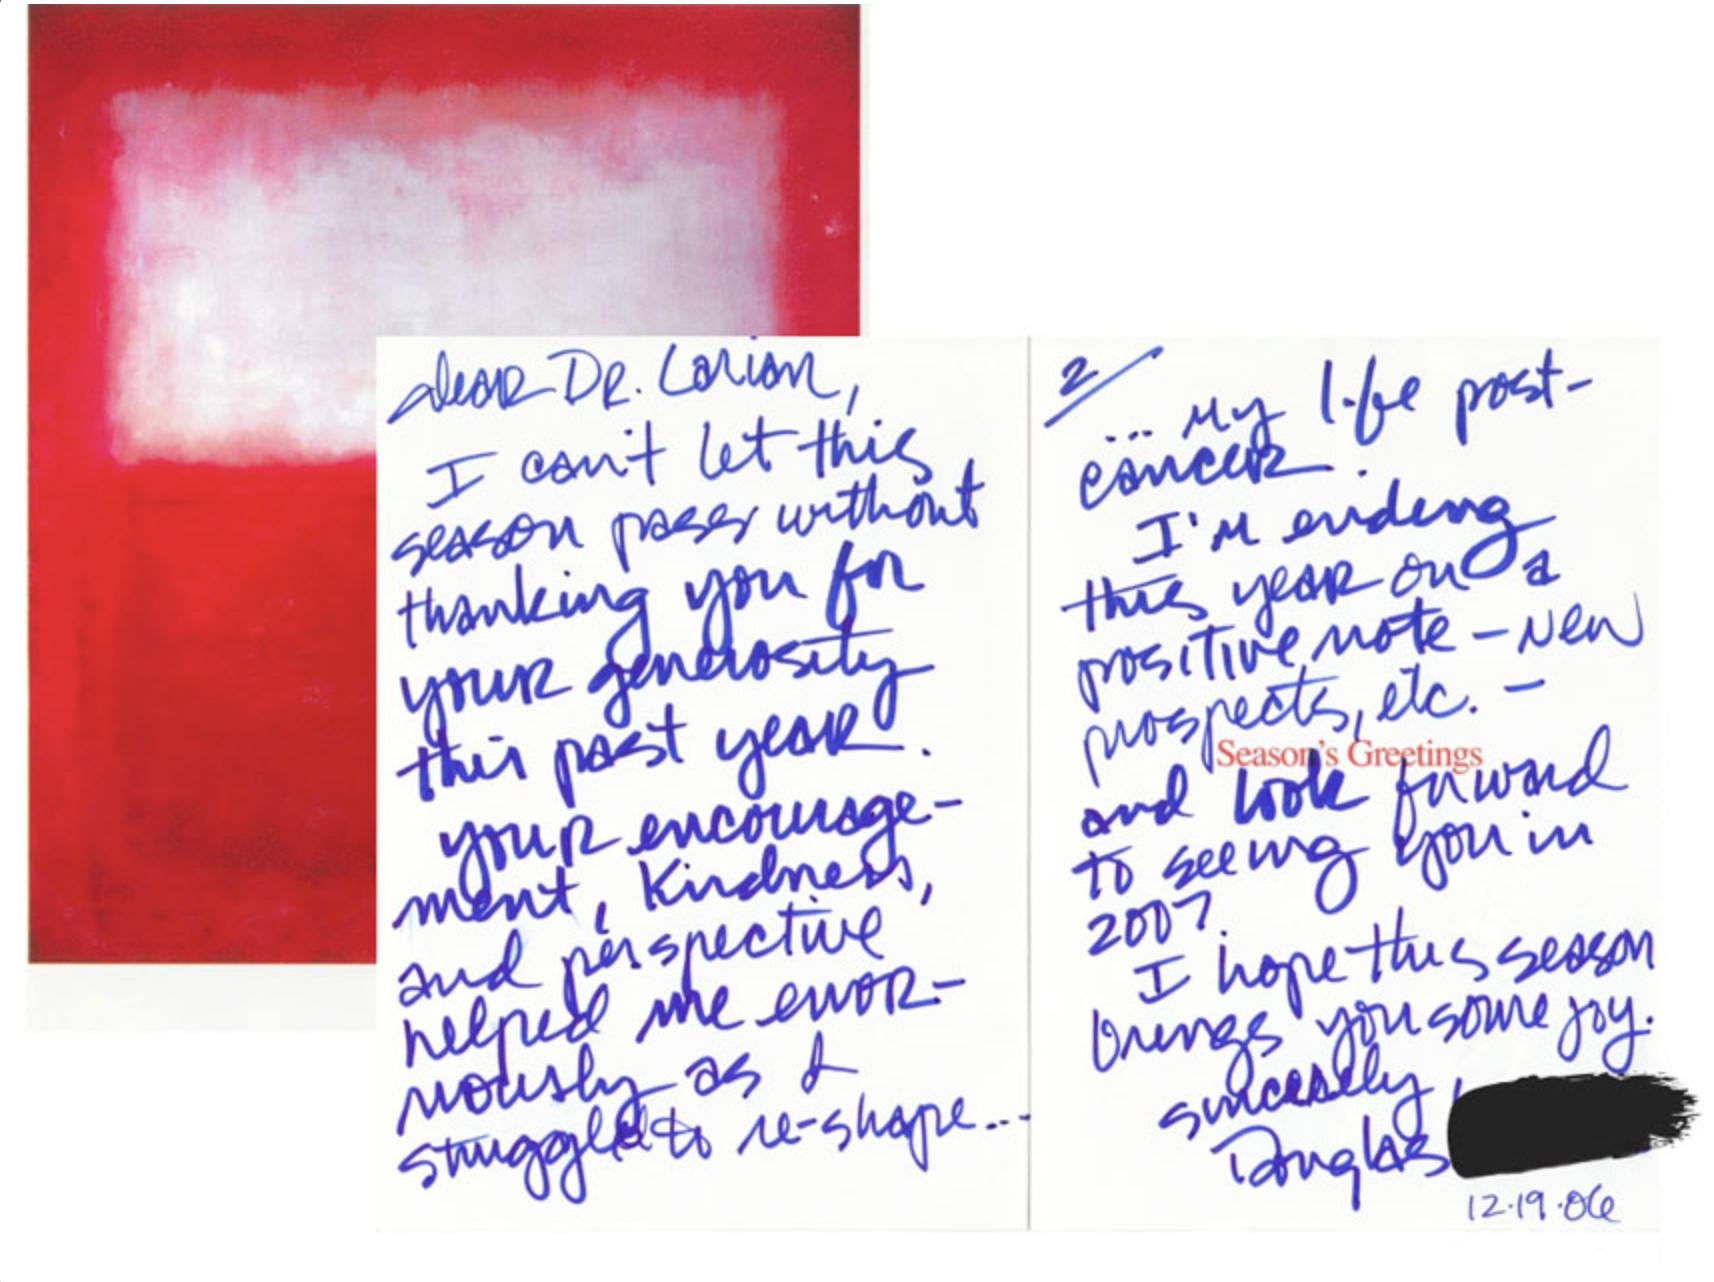 Dear Dr. Larian,
I can't let this
season pass without
thanking you for
your generosity
this past year.
Your encourage-
ment, kindness,
and perspective
helped me enor-
mously as I
struggled to re-shape...
2
... my life post-
cancer.
I'm ending
this year on a
positive note - new
prospects, etc. -
Season's Greetings
and look forward
to seeing you in
2007.
I hope this season
brings you some joy.
Sincerely,
Douglas
12.19.06